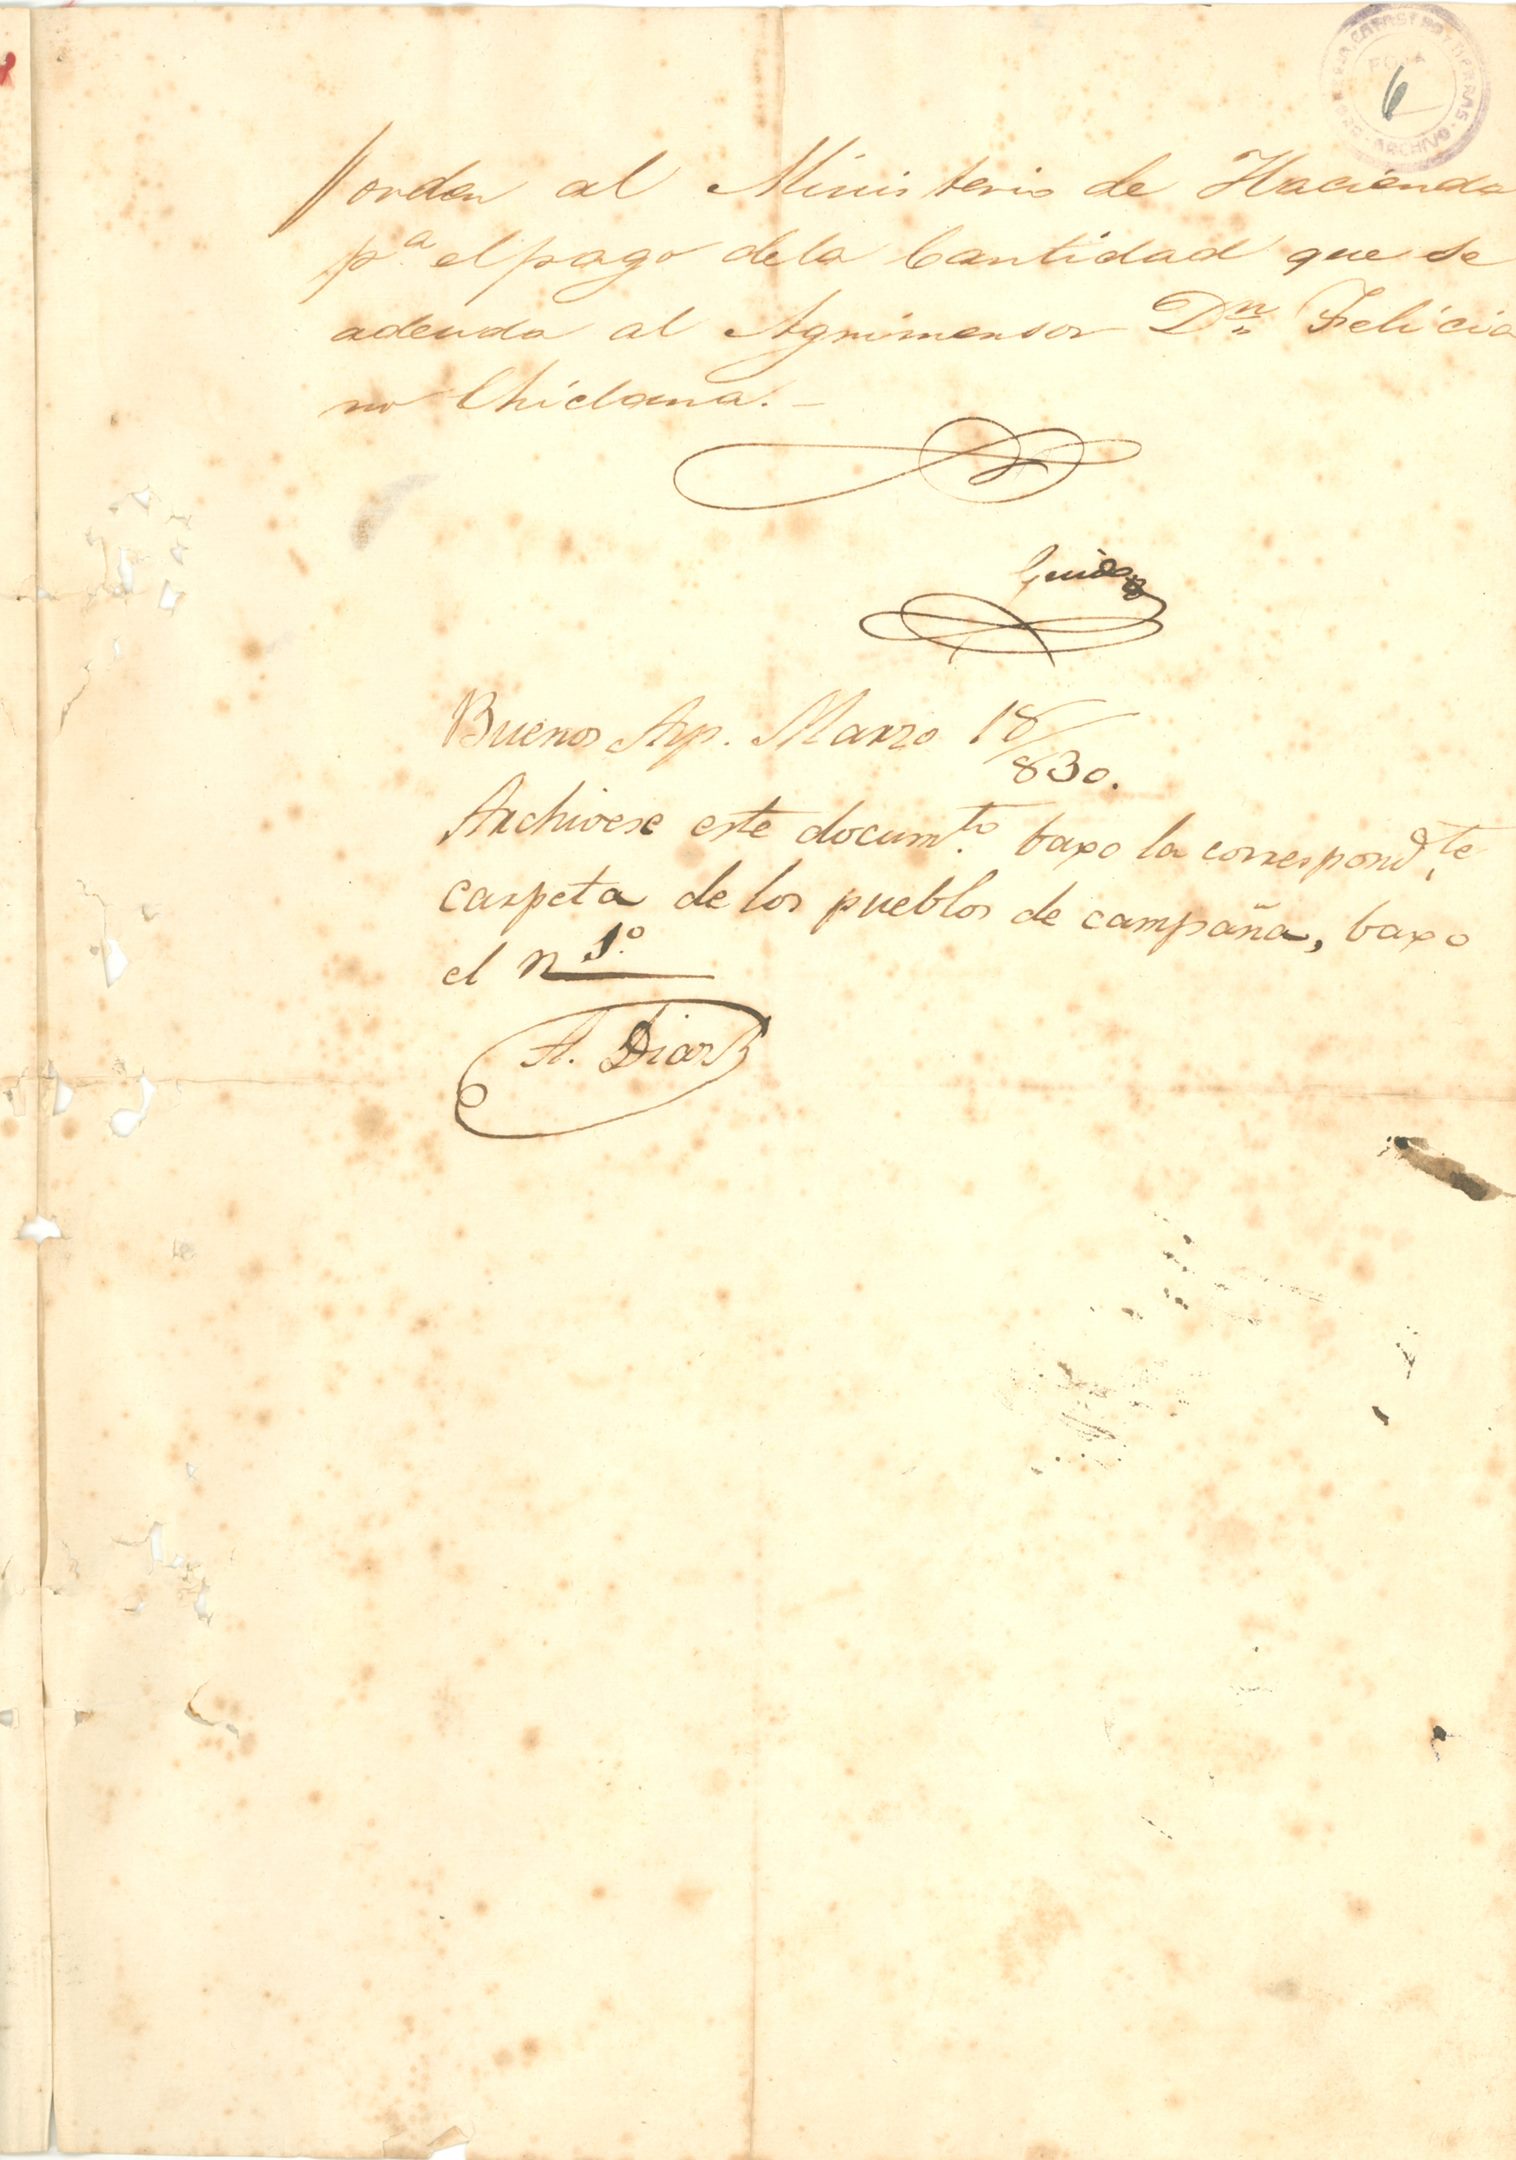 FOJA
6
CATASTRO Y TIERRAS · ARCHIVO
orden al Ministerio de Hacienda
pa. el pago dela Cantidad que se
adeuda al Agrimensor Dn. Felicia
no Chiclana. _
Guido
Buenos Ayr. Marzo 18/830.
Archivese este documto. baxo la correspondte.
carpeta de los pueblos de campaña, baxo
el n 1.o
A. Diaz